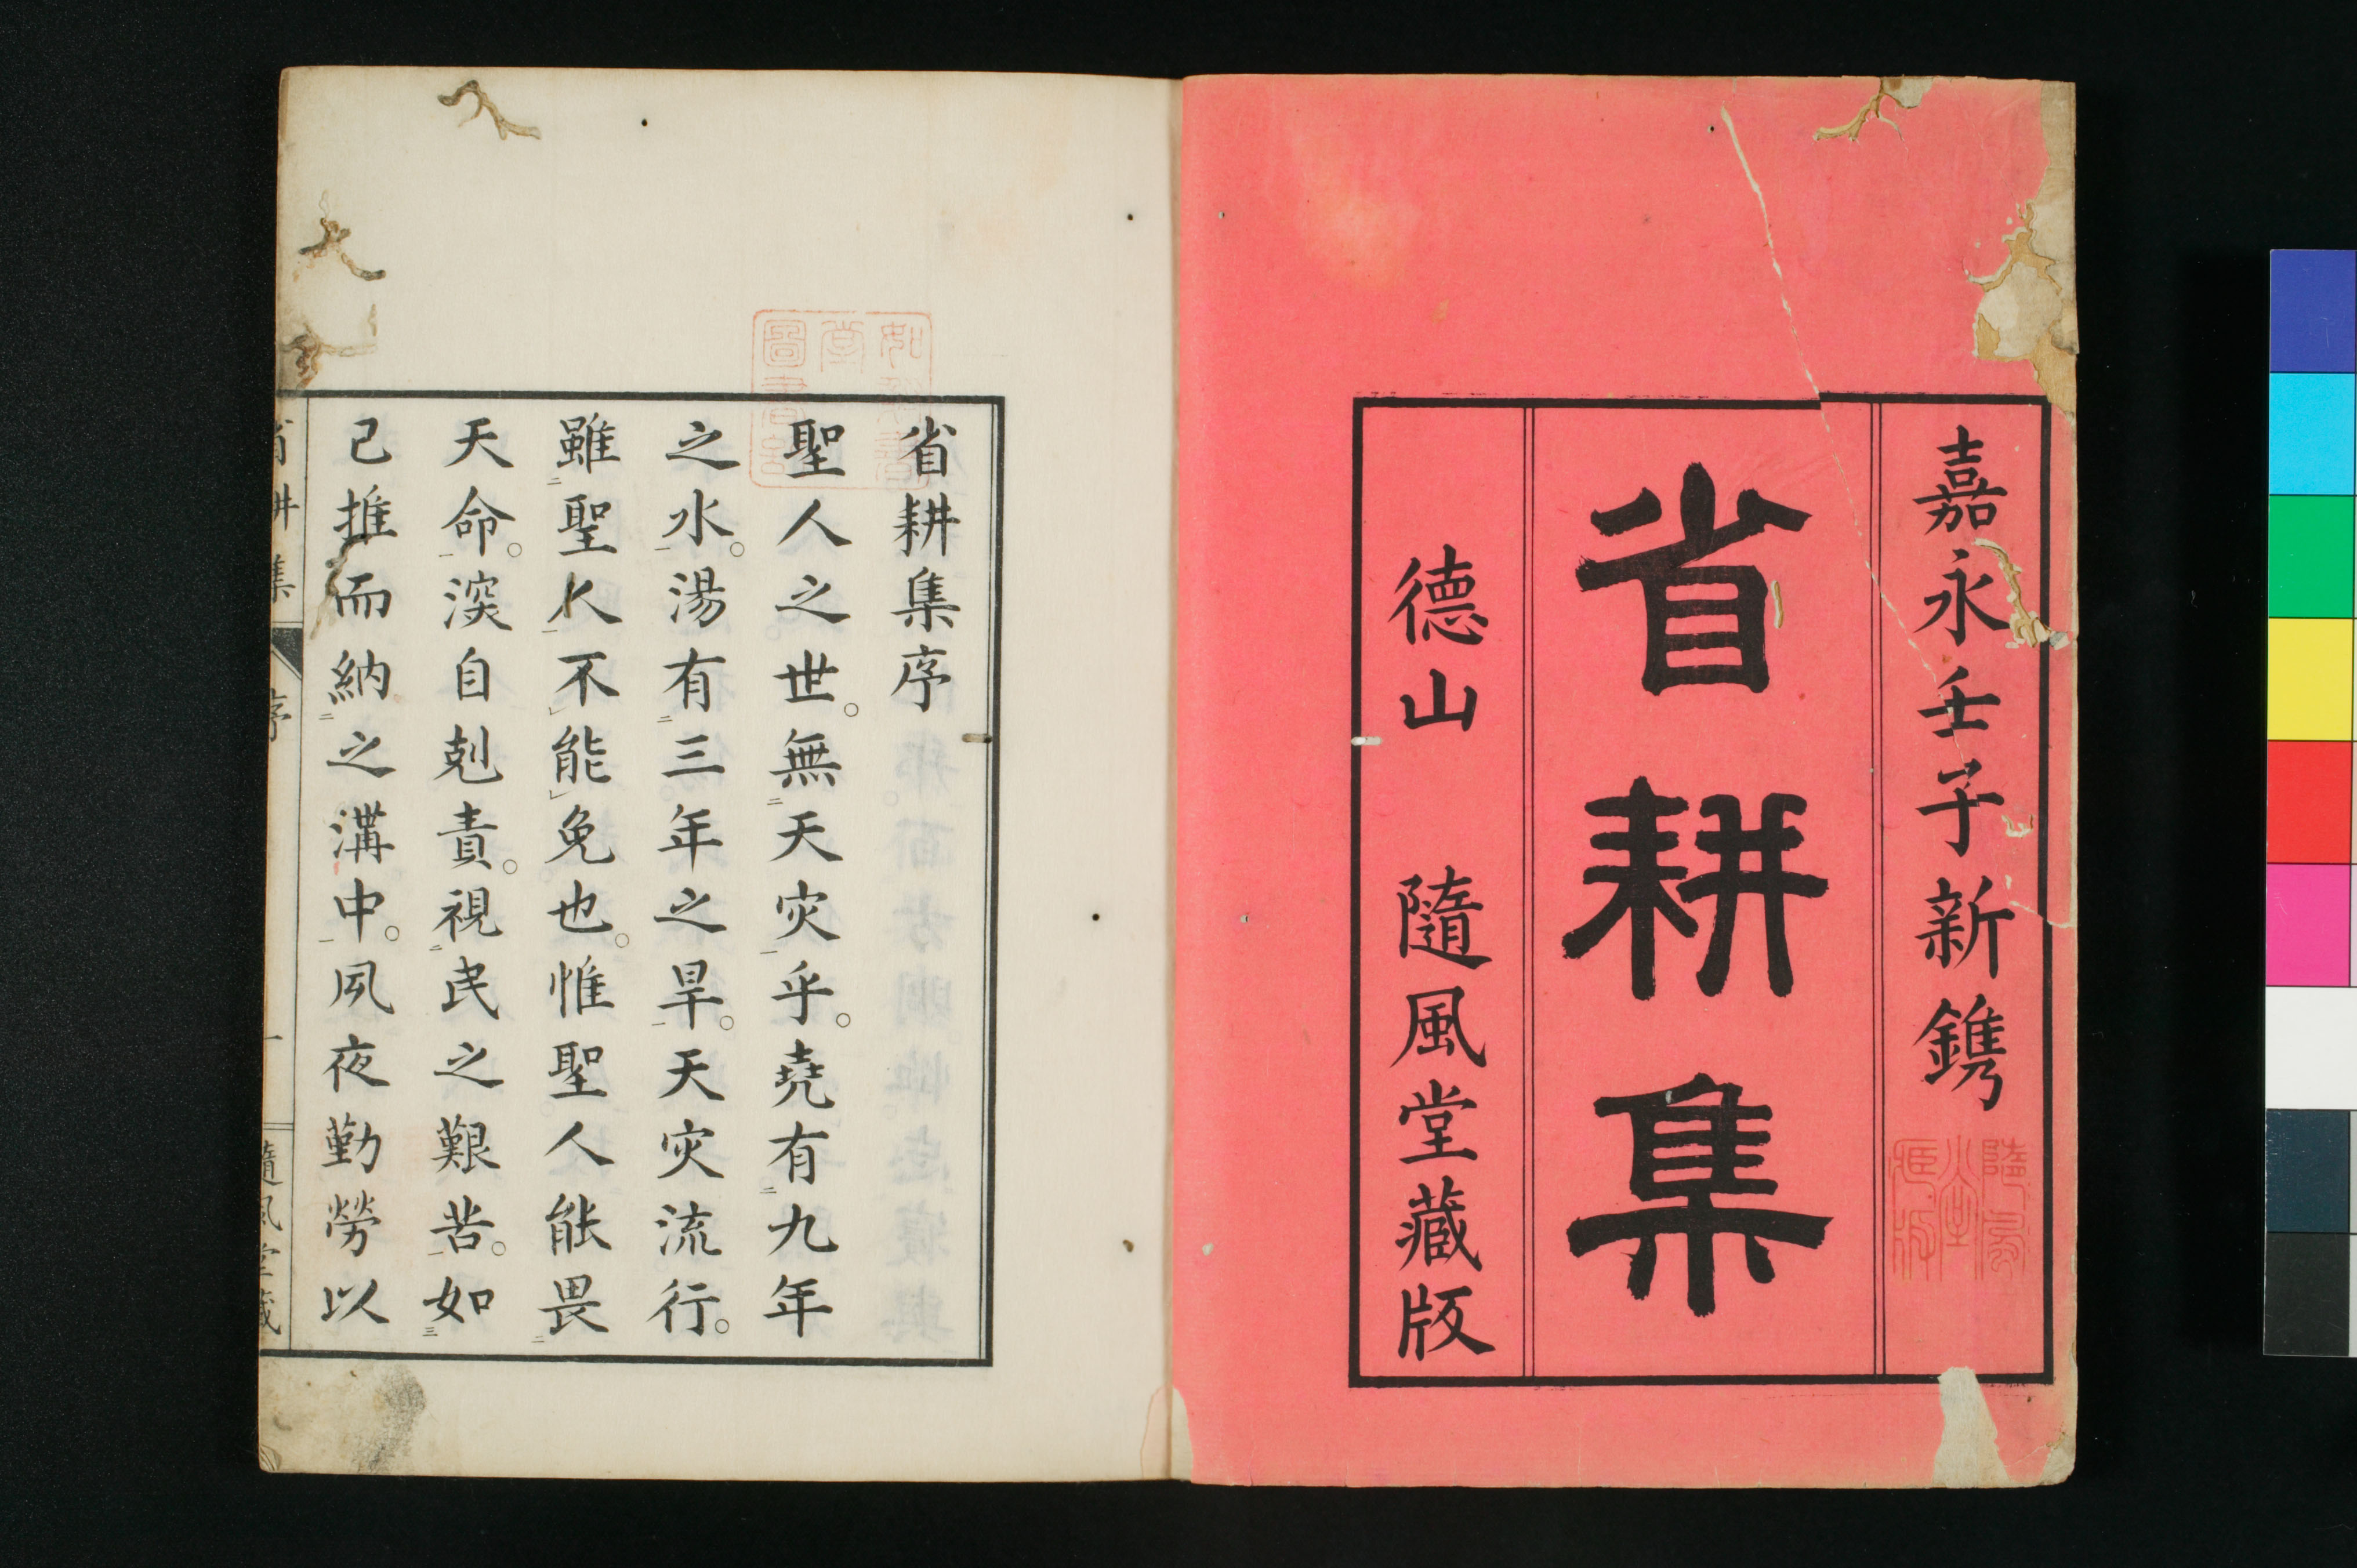 嘉永壬子新鐫
省耕集
德山 隨風堂藏版
隨風堂藏版
省耕集序
聖人之世。無天灾乎。堯有九年
之水。湯有三年之旱。天灾流行。
雖聖人不能免也。惟聖人能畏
天命。深自剋責。視民之艱苦。如
己推而納之溝中。夙夜勤勞以
省耕集 序 一 隨風堂藏